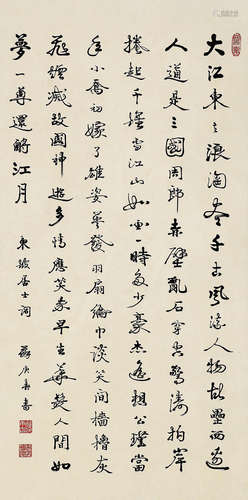 大江東去浪淘盡千古風流人物故壘西邊
人道是三國周郎赤壁亂石穿空驚濤拍岸
捲起千堆雪江山如畫一時多少豪傑遙想公瑾當
年小喬初嫁了雄姿英發羽扇綸巾談笑間檣櫓灰
飛煙滅故國神遊多情應笑我早生華髮人間如
夢一尊還酹江月
東坡居士詞 蘇庚春書